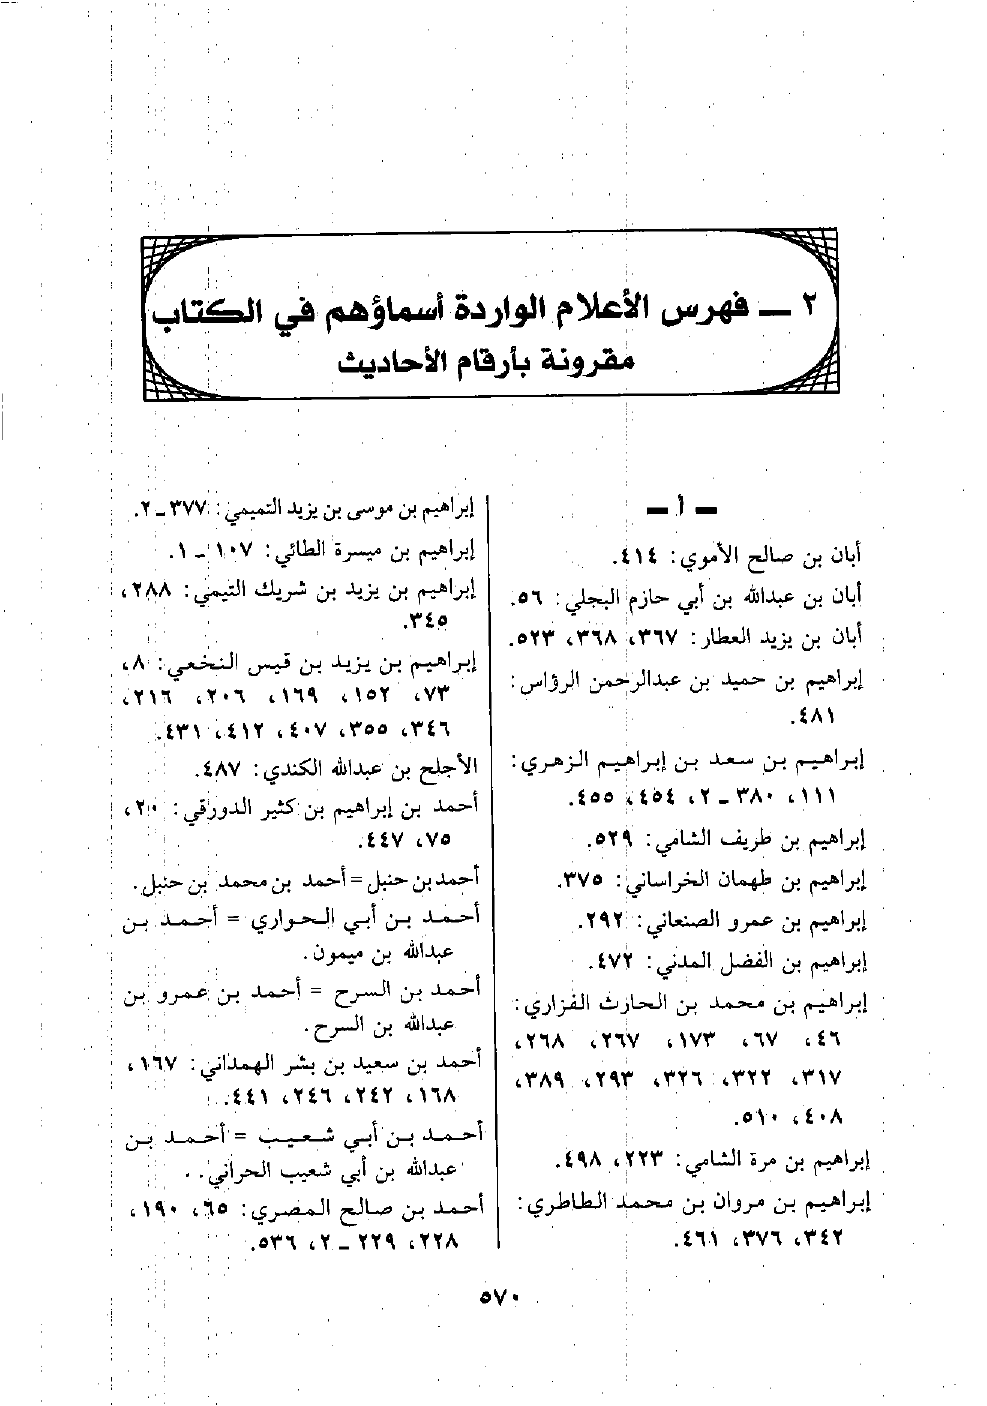 ٢ — فهرس الأعلام الواردة أسماؤهم في الكتاب
مقرونة بأرقام الأحاديث
— أ —
أبان بن صالح الأموي: ٤١٤.
أبان بن عبدالله بن أبي حازم البجلي: ٥٦.
أبان بن يزيد العطار: ٣٦٧، ٣٦٨، ٥٢٣.
إبراهيم بن حميد بن عبدالرحمن الرؤاس:
٤٨١.
إبراهيم بن سعد بن إبراهيم الزهري:
١١١، ٣٨٠ – ٢، ٤٥٤، ٤٥٥.
إبراهيم بن طريف الشامي: ٥٢٩.
إبراهيم بن طهمان الخراساني: ٣٧٥.
إبراهيم بن عمرو الصنعاني: ٢٩٢.
إبراهيم بن الفضل المدني: ٤٧٢.
إبراهيم بن محمد بن الحارث الفزاري:
٤٦، ٦٧، ١٧٣، ٢٦٧، ٢٦٨،
٣١٧، ٣٢٢، ٣٢٦، ٢٩٣، ٣٨٩،
٤٠٨، ٥١٠.
إبراهيم بن مرة الشامي: ٢٢٣، ٤٩٨.
إبراهيم بن مروان بن محمد الطاطري:
٣٤٢، ٣٧٦، ٤٦١.
إبراهيم بن موسى بن يزيد التميمي: ٣٧٧ – ٢.
إبراهيم بن ميسرة الطائي: ١٠٧ – ١.
إبراهيم بن يزيد بن شريك التيمي: ٢٨٨،
٣٤٥.
إبراهيم بن يزيد بن قيس النخعي: ٨،
٧٣، ١٥٢، ١٦٩، ٢٠٦، ٢١٦،
٣٤٦، ٣٥٥، ٤٠٧، ٤١٢، ٤٣١.
الأجلح بن عبدالله الكندي: ٤٨٧.
أحمد بن إبراهيم بن كثير الدورقي: ٢٠،
٧٥، ٤٤٧.
أحمد بن حنبل = أحمد بن محمد بن حنبل.
أحمد بن أبي الحواري = أحمد بن
عبدالله بن ميمون.
أحمد بن السرح = أحمد بن عمرو بن
عبدالله بن السرح.
أحمد بن سعيد بن بشر الهمداني: ١٦٧،
١٦٨، ٢٤٢، ٢٤٦، ٤٤١.
أحمد بن أبي شعيب = أحمد بن
عبدالله بن أبي شعيب الحراني.
أحمد بن صالح المصري: ٦٥، ١٩٠،
٢٢٨، ٢٢٩ – ٢، ٥٣٦.
٥٧٠